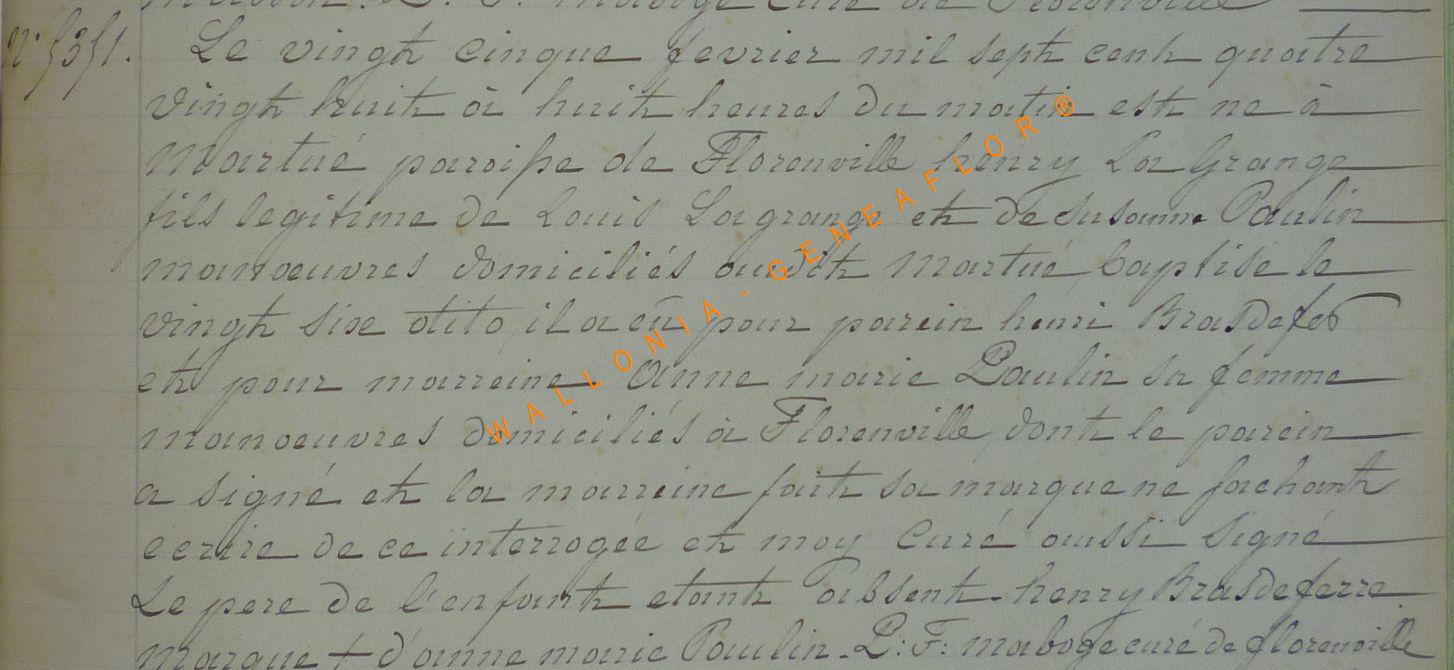 P. F. maboge curé de Florenville
Le vingt cinque fevrier mil sept cent quatre
vingt huit à huit heures du matin est ne à
Martué paroisse de Florenville henry La Grange
fils legitime de Louis Lagrange et de susanne Paulin
manoeuvres domiciliés audit Martué baptisé le
vingt six dito, il a eû pour parein henri Brasdefer
et pour marreine Anne marie Paulin sa femme
manoeuvres domiciliés à Florenville, dont le parein
a signé et la marreine fait sa marque ne sachant
écrire de ce interrogée et moy Curé aussi signé
Le pere de l'enfant etant absent - henry Brasdeferre
marque + d'anne marie Paulin - P: F: maboge curé de florenville
WALLONIA - GENEAFLOR ®